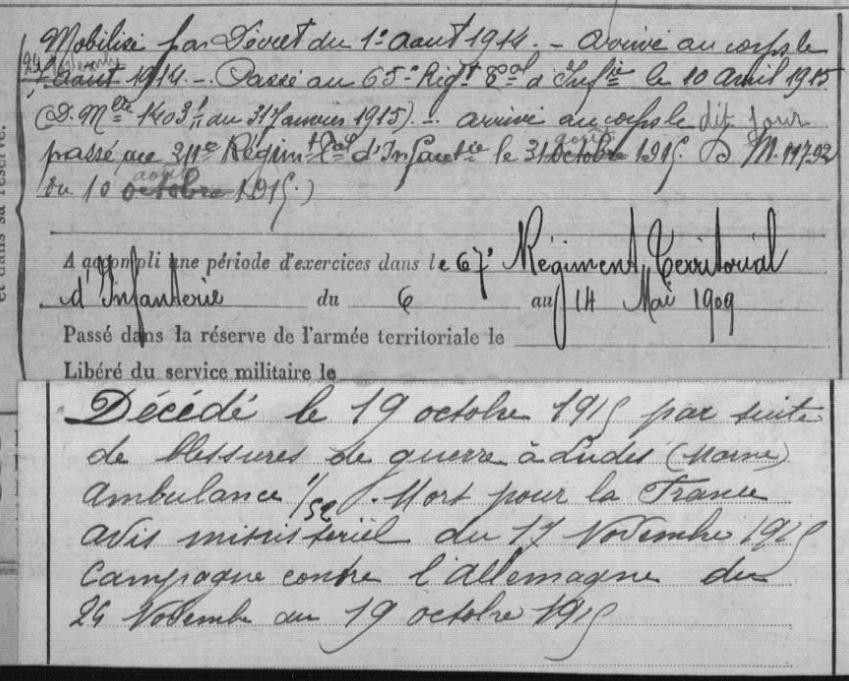 Mobilisé par Décret du 1er Aout 1914. - Arrivé au corps le
24 aout 1914. - Passé au 65e Régt Tal d'Infie le 10 avril 1915
(D. Mlle 1403 du 31 Janvier 1915). - arrivé au corps le dit jour
passé au 211e Régimt Tal d'Infantie le 31 octobre août 1915. D M. 11792
du 10 octobre août 1915.)
A accompli une période d'exercices dans le 67e Régiment Territorial
d'Infanterie du 6 au 14 Mai 1909
Passé dans la réserve de l'armée territoriale le
Libéré du service militaire le
Décédé le 19 octobre 1915 par suite
de blessures de guerre à Ludes (Marne)
Ambulance 1/52. Mort pour la France
avis ministériel du 17 Novembre 1915
Campagne contre l'allemagne du
24 Novemb au 19 octobre 1915
et dans sa réserve.